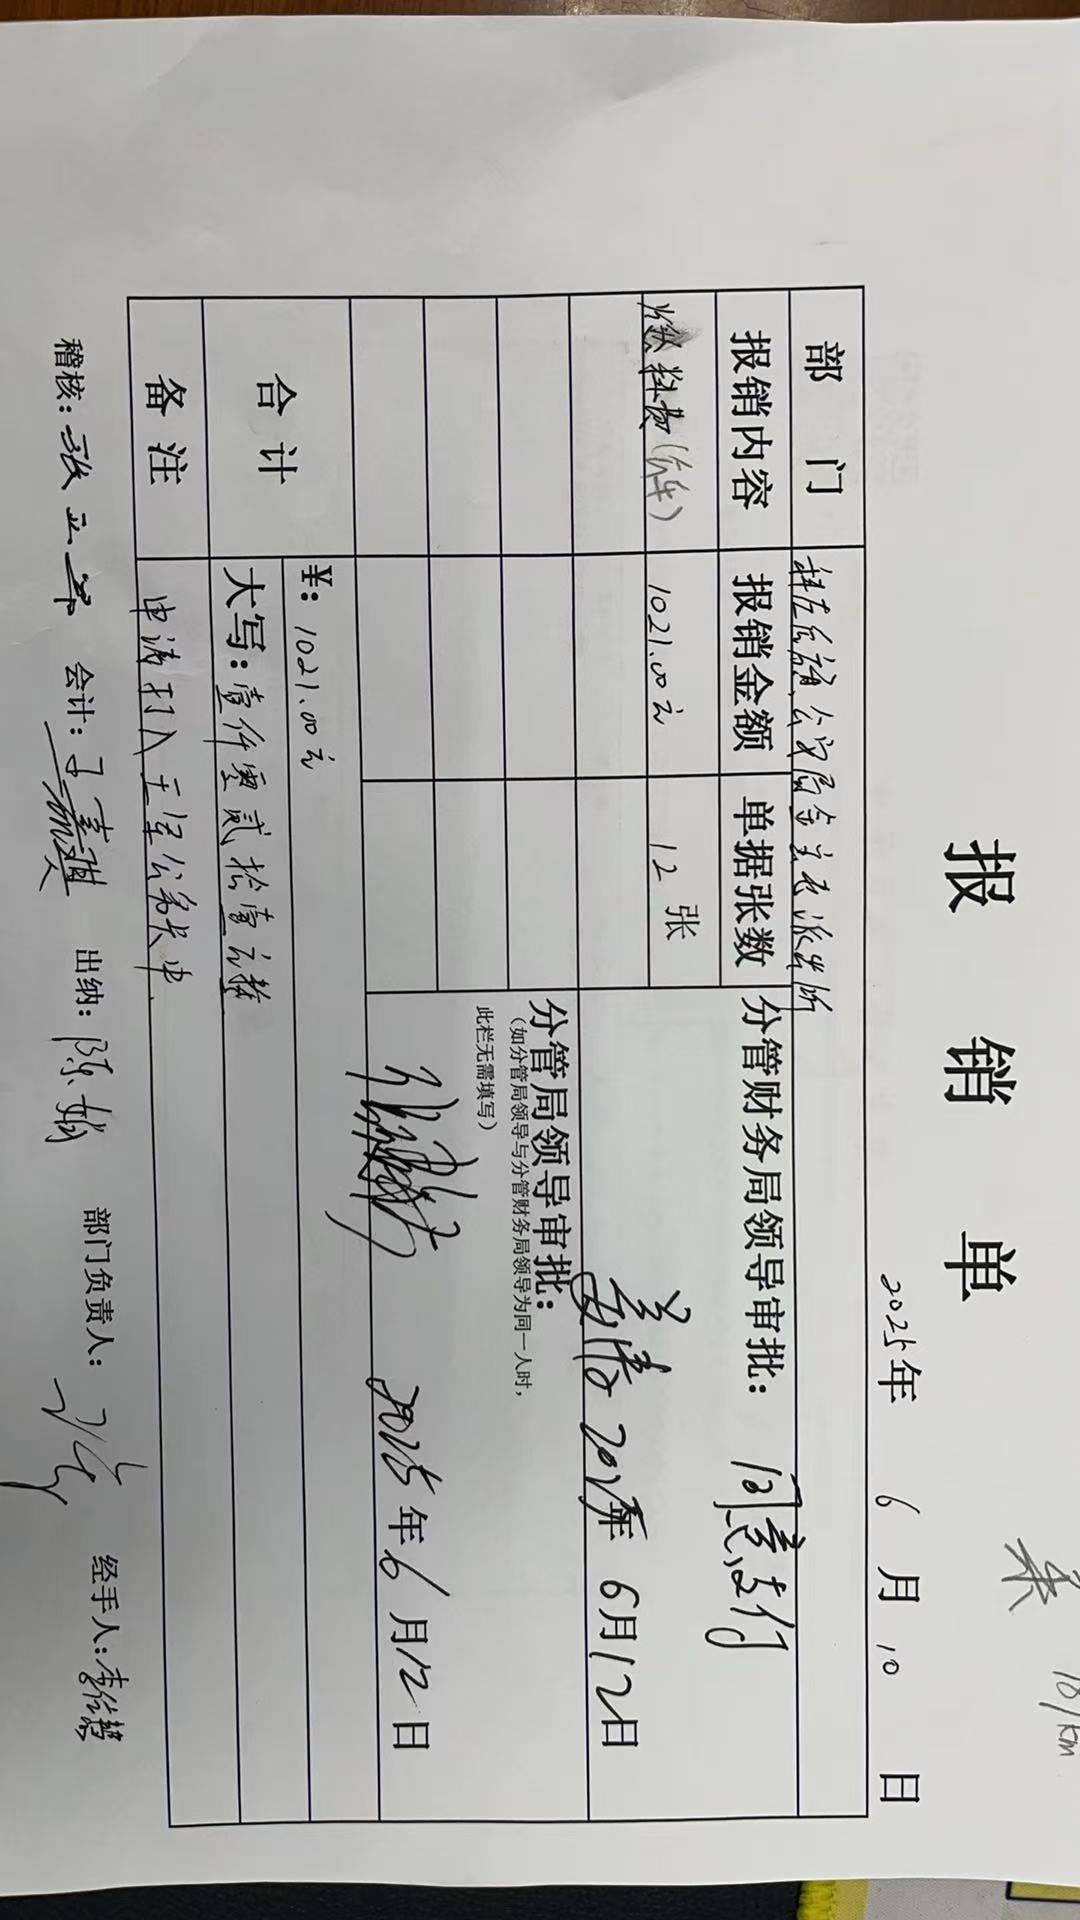 报销单
2025年 6月 10日
部门
报销内容 报销金额 单据张数 分管财务局领导审批: 同意支付
燃料费(汽车) 1021.00元 12张
2025年6月12日
分管局领导审批:
(如分管局领导与分管财务局领导为同一人时,
此栏无需填写)
2025年6月12日
合计 ¥: 1021.00元
大写: 壹仟零贰拾壹元整
备注 申请打入 公务卡中
稽核: 张 会计: 出纳: 陈 部门负责人: 经手人: 李
18/km